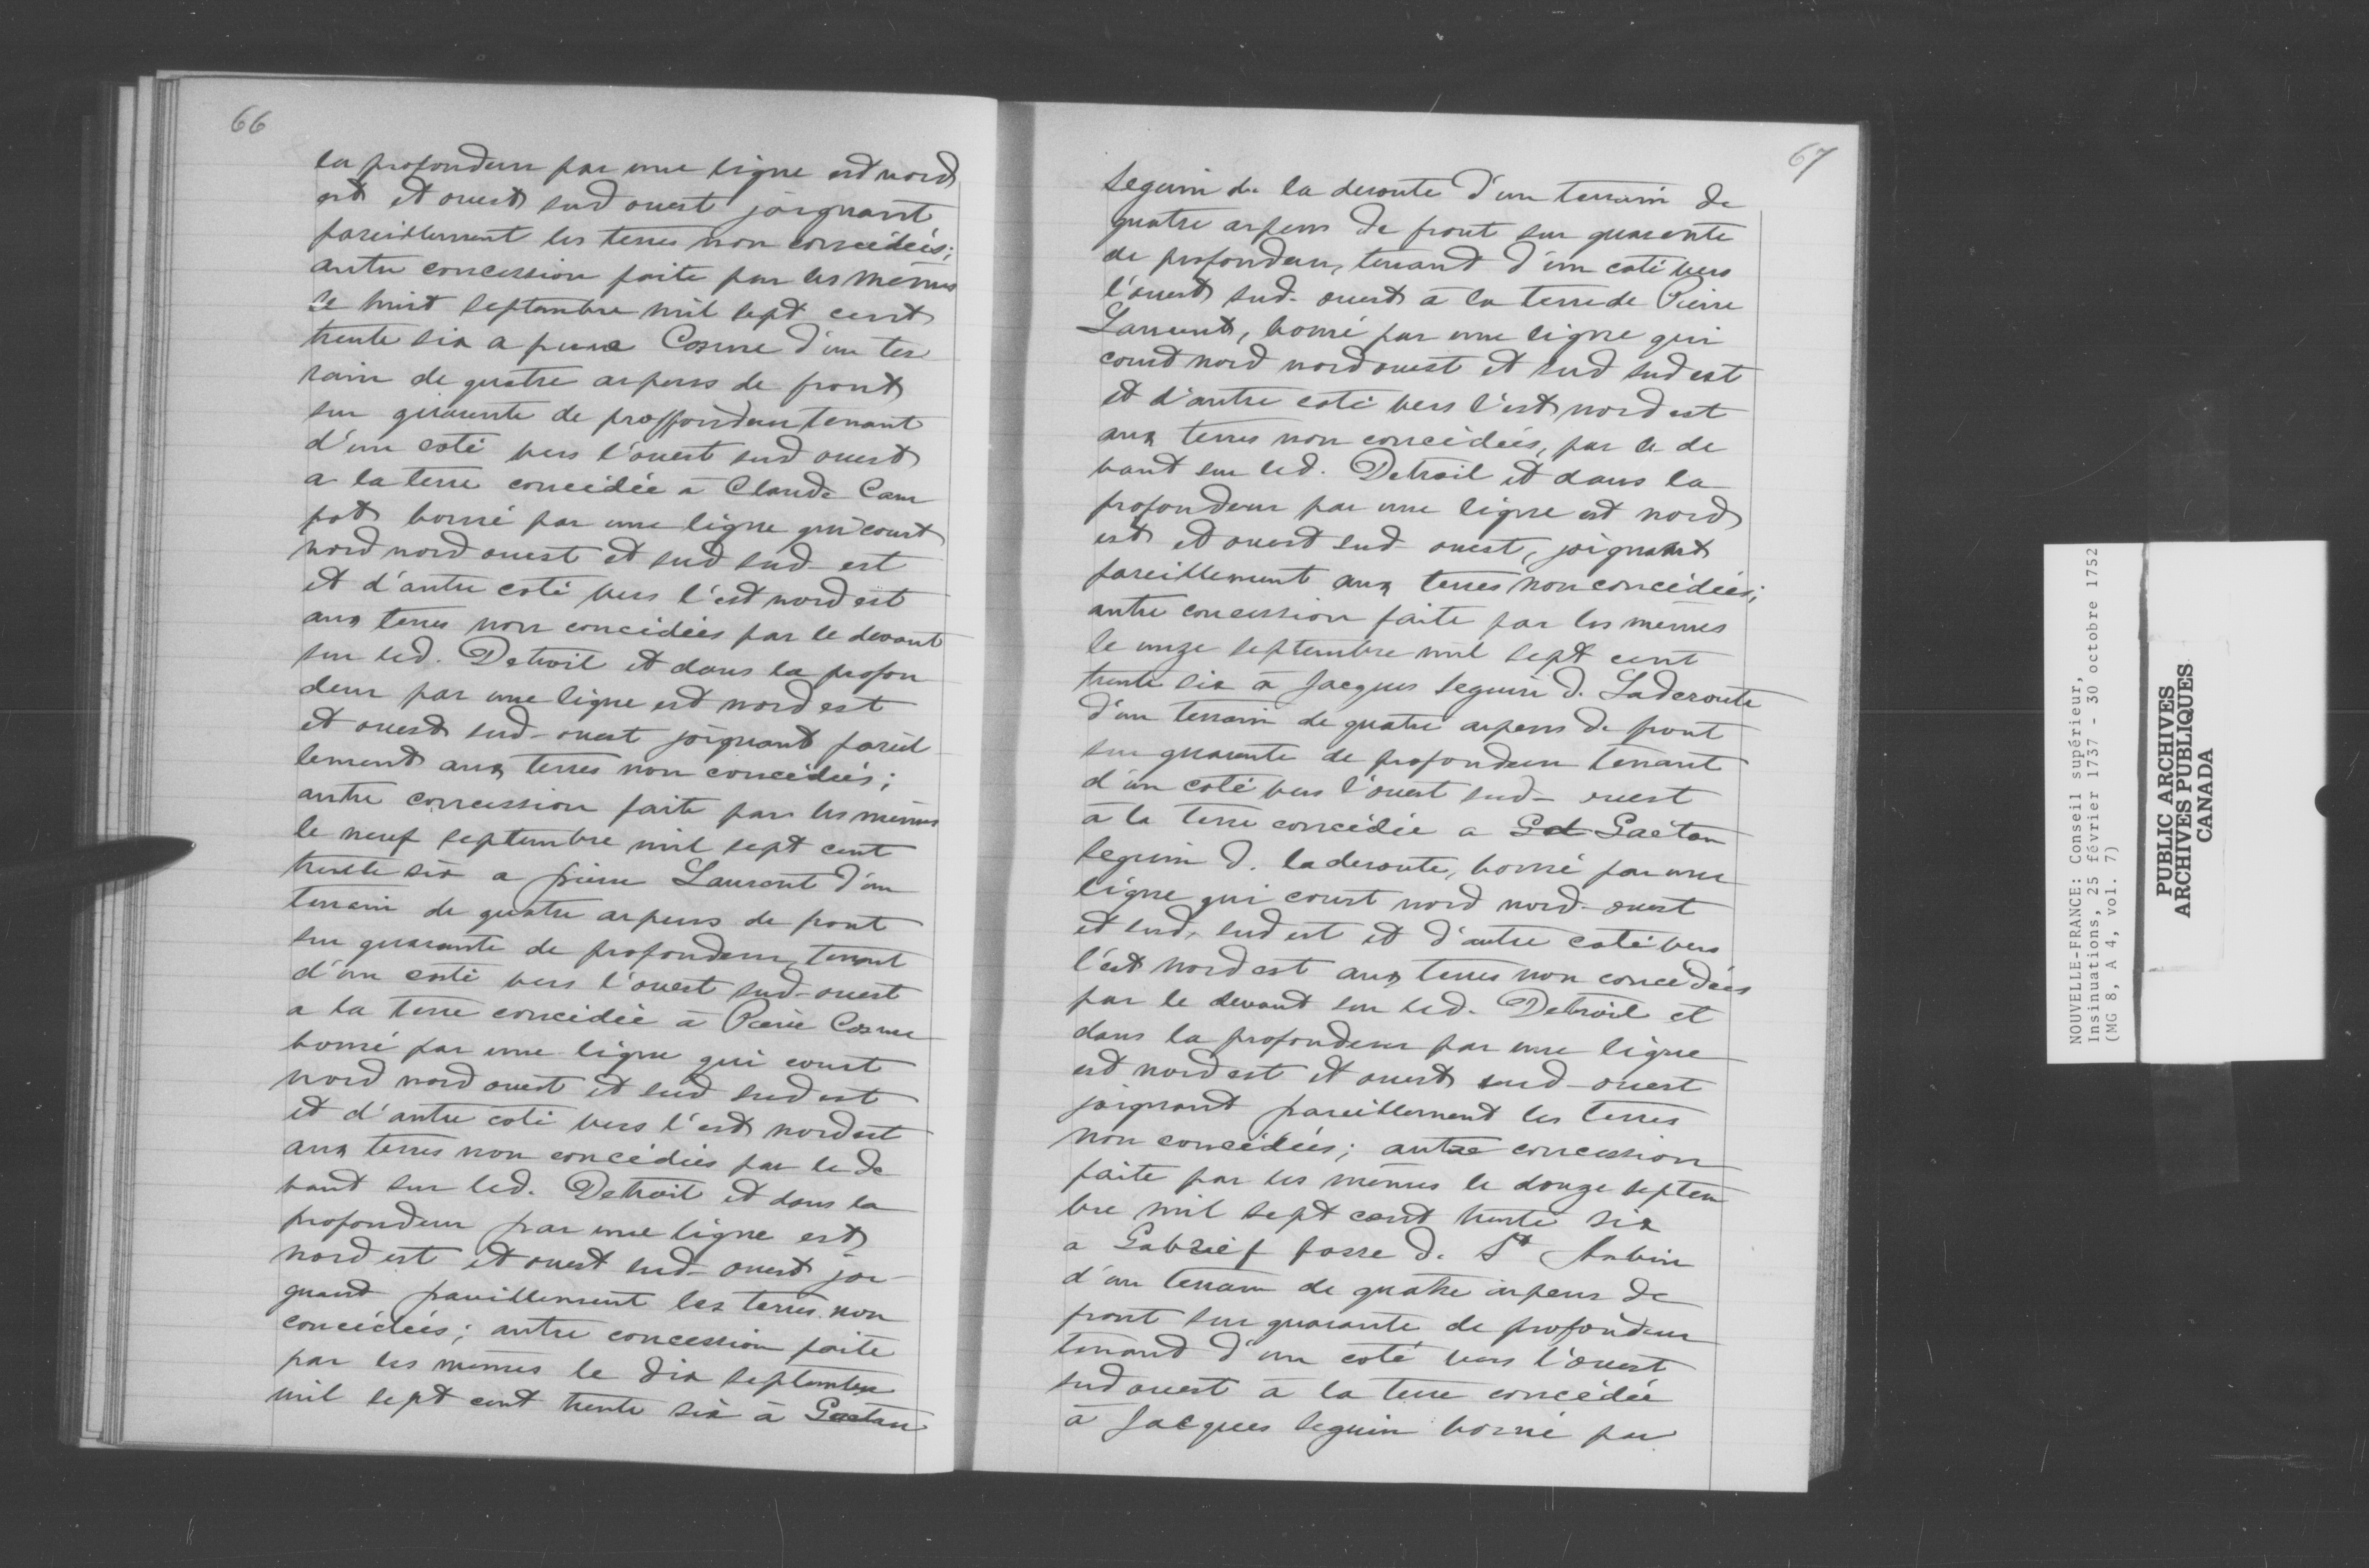 66
la profondeur par une ligne est nord
est et ouest sud ouest joignant
pareillement les terres non concédées;
autre concession faite par les mêmes
le huit septembre mil sept cent
trente six a pierre Cosme d'un ter
rain de quatre arpens de front
sur quarente de proffondeur tenant
d'un coté vers l'ouest sud ouest
a la terre concédée à Claude Cam
pot borné par une ligne qui court
nord nord ouest et sud sud-est
et d'autre coté vers l'est nord est
aux terres non concédées par le devant
sur led. Detroit et dans la profon
deur par une ligne est nord est
et ouest sud-ouest joignant pareil
lement aux terres non concédées;
autre concession faite par les mêmes
le neuf septembre mil sept cent
trente six a pierre Laurent d'un
terrain de quatre arpens de front
sur quarante de profondeur, tenant
d'un costé vers l'ouest sud-ouest
a la terre concédée à Pierre Cosme
borné par une ligne qui court
nord nord ouest et sud sud est
et d'autre coté vers l'est nord est
aux terres non concédées par le de
vant sur led. Detroit et dans la
profondeur par une ligne est
nord est et ouest sud-ouest joi-
gnant pareillement les terres non
concédées; autre concession faite
par les mêmes le dix septembre
mil sept cent trente six à Gaetan
67
seguin de la deroute d'un terrain de
quatre arpens de front sur quarente
de profondeur, tenant d'un coté vers
l'ouest sud-ouest à la terre de Pierre
Laurent, borné par une ligne qui
court nord nord ouest et sud sud est
et d'autre coté vers l'est nord est
aux terres non concédées, par le de
vant sur led. Detroit et dans la
profondeur par une ligne est nord
est et ouest sud-ouest, joignant
pareillement aux terres non concédées;
autre concession faite par les mêmes
le onze septembre mil sept cent
trente six à Jacques Seguin d. Laderoute
d'un terrain de quatre arpens de front
sur quarante de profondeur tenant
d'un coté vers l'ouest sud-ouest
à la terre concédée a Gaëtan
Seguin d. laderoute, borné par une
ligne qui court nord nord-ouest
et sud, sud est et d'autre coté vers
l'est nord est aux terres non concedées
par le devant sur led. Detroit et
dans la profondeur par une ligne
est nord est et ouest sud-ouest
joignant pareillement les terres
non concédées; autre concession
faite par les mêmes le douze septem
bre mil sept cent trente six
a Gabrief fosse d. St Aubin
d'un terrain de quatre arpens de
front sur quarante de profondeur
tenant d'un coté vers l'ouest
sud ouest à la terre concédée
à Jacques Seguin borné par
NOUVELLE-FRANCE: Conseil supérieur,
Insinuations, 25 février 1737 - 30 octobre 1752
(MG 8, A 4, vol. 7)
PUBLIC ARCHIVES
ARCHIVES PUBLIQUES
CANADA